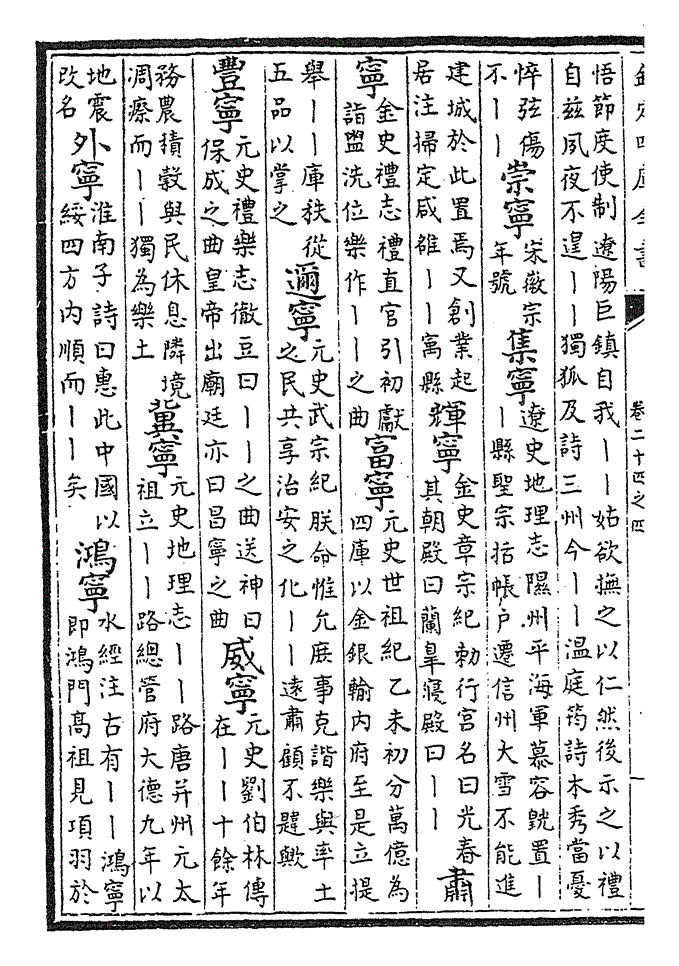 欽定四庫全書
卷二十四之四
悟節度使制遼陽巨鎮自我丨丨姑欲撫之以仁然後示之以禮
自兹夙夜不遑丨丨獨狐及詩三州今丨丨温庭筠詩本秀當憂
悴弦傷
不丨丨
崇寧
宋徽宗
年號
集寧
遼史地理志隰州平海軍慕容皝置丨
丨縣聖宗括帳户遷信州大雪不能進
建城於此置焉又創業起
居注掃定咸雒丨丨寓縣
輝寧
金史章宗紀勅行宫名曰光春
其朝殿曰蘭臯寢殿曰丨丨
肅
寧
金史禮志禮直官引初獻
詣盥洗位樂作丨丨之曲
富寧
元史世祖紀乙未初分萬億為
四庫以金銀輸内府至是立提
舉丨丨庫秩從
五品以掌之
邇寧
元史武宗紀朕命惟允庶事克諧樂與率土
之民共享治安之化丨丨遠肅顧不韙歟
豐寧
元史禮樂志徹豆曰丨丨之曲送神曰
保成之曲皇帝出廟廷亦曰昌寧之曲
威寧
元史劉伯林傳
在丨丨十餘年
務農積穀與民休息隣境
凋瘵而丨丨獨為樂土
冀寧
元史地理志丨丨路唐并州元太
祖立丨丨路總管府大德九年以
地震
改名
外寧
淮南子詩曰惠此中國以
綏四方内順而丨丨矣
鴻寧
水經注古有丨丨鴻寧
即鴻門髙祖見項羽於